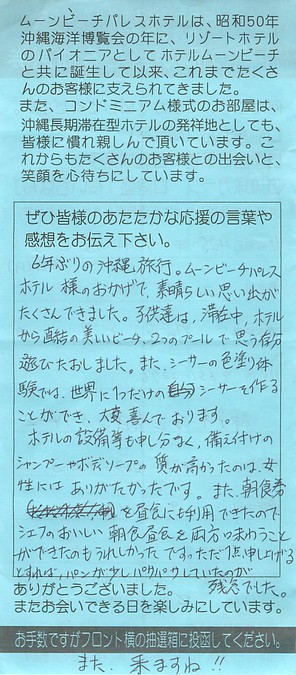 ムーンビーチパレスホテルは、昭和50年
沖縄海洋博覧会の年に、リゾートホテル
のパイオニアとしてホテルムーンビーチ
と共に誕生して以来、これまでたくさ
んのお客様に支えられてきました。
また、コンドミニアム様式のお部屋は、
沖縄長期滞在型ホテルの発祥地としても、
皆様に慣れ親しんで頂いています。こ
れからもたくさんのお客様との出会いと、
笑顔を心待ちにしています。
ぜひ皆様のあたたかな応援の言葉や
感想をお伝え下さい。
6年ぶりの沖縄旅行。ムーンビーチパレス
ホテル様のおかげで、素晴らしい思い出が
たくさんできました。子供達は、滞在中、ホテル
から直結の美しいビーチ、2つのプールで思う存分
遊びたおしました。また、シーサーの色塗り体
験では、世界に1つだけのシーサーを作る
ことができ、大変喜んでおります。
ホテルの設備等も申し分なく、備え付けの
シャンプーやボディソープの質が高かったのは、女
性にはありがたかったです。また、朝食券
を昼食にも利用できたので
シェフのおいしい朝食昼食を両方味わうこと
ができたのもうれしかったです。ただ1点申し上げる
とすれば、パンが少しパサパサしていたのが
残念でした。
ありがとうございました。
またお会いできる日を楽しみにしています。
お手数ですがフロント横の抽選箱に投函してください。
また、来ますね!!